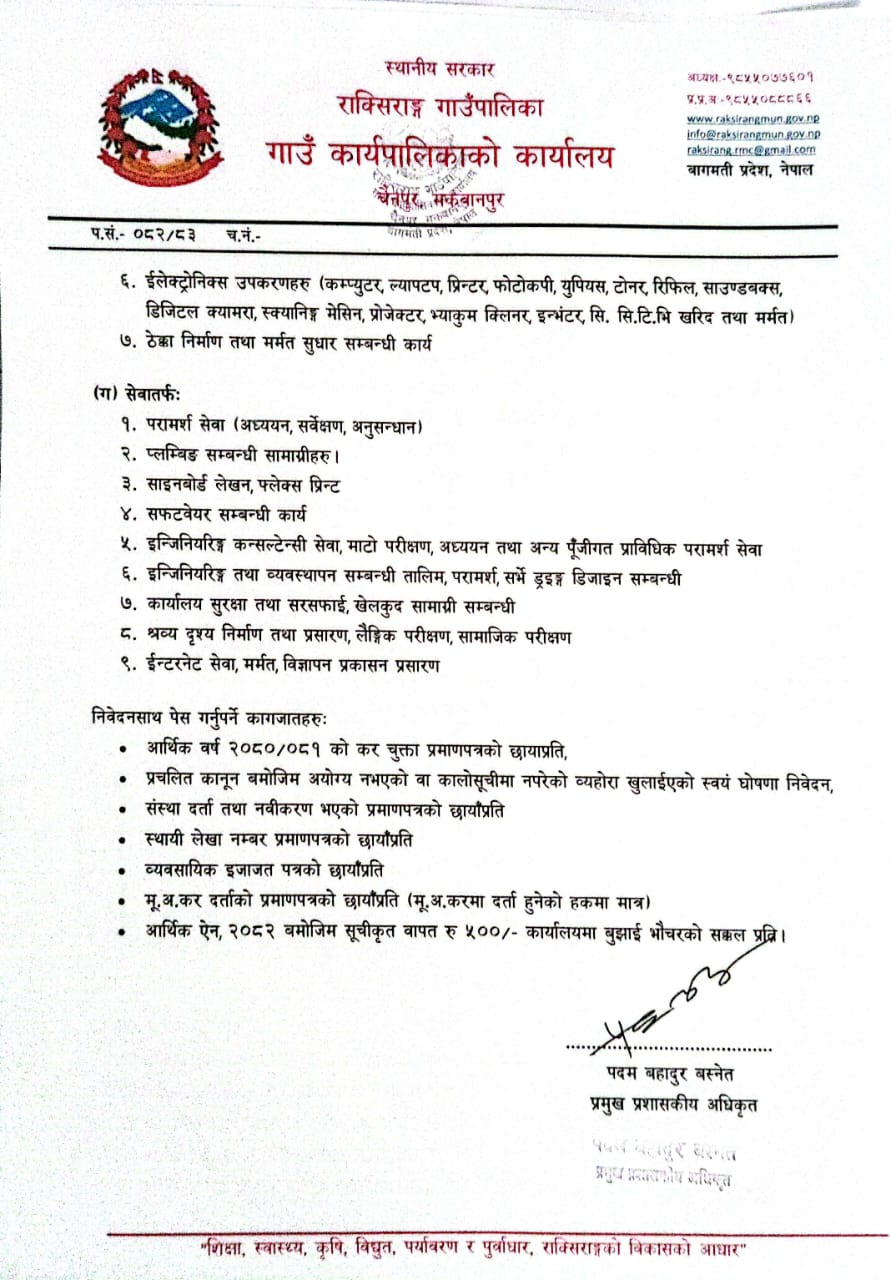 स्थानीय सरकार
राक्सिराङ्ग गाउँपालिका
गाउँ कार्यपालिकाको कार्यालय
चैनपुर मकवानपुर
बागमती प्रदेश, नेपाल
अध्यक्ष.-९८५५०७७६०१
प्र.प्र.अ-९८५५०८८८६६
www.raksirangmun.gov.np
info@raksirangmun.gov.np
raksirang.rmc@gmail.com
बागमती प्रदेश, नेपाल
प.सं.- ०८२/८३ च.नं.-
६. ईलेक्ट्रोनिक्स उपकरणहरु (कम्प्युटर, ल्यापटप, प्रिन्टर, फोटोकपी, युपियस, टोनर, रिफिल, साउण्डबक्स,
डिजिटल क्यामरा, स्क्यानिङ्ग मेसिन, प्रोजेक्टर, भ्याकुम क्लिनर, इन्भंटर, सि. सि.टि.भि खरिद तथा मर्मत)
७. ठेक्का निर्माण तथा मर्मत सुधार सम्बन्धी कार्य
(ग) सेवातर्फः
१. परामर्श सेवा (अध्ययन, सर्वेक्षण, अनुसन्धान)
२. प्लम्बिङ सम्बन्धी सामाग्रीहरु।
३. साइनबोर्ड लेखन, फ्लेक्स प्रिन्ट
४. सफटवेयर सम्बन्धी कार्य
५. इन्जिनियरिङ्ग कन्सल्टेन्सी सेवा, माटो परीक्षण, अध्ययन तथा अन्य पूँजीगत प्राविधिक परामर्श सेवा
६. इन्जिनियरिङ्ग तथा व्यवस्थापन सम्बन्धी तालिम, परामर्श, सर्भे ड्रइङ्ग डिजाइन सम्बन्धी
७. कार्यालय सुरक्षा तथा सरसफाई, खेलकुद सामाग्री सम्बन्धी
८. श्रव्य दृश्य निर्माण तथा प्रसारण, लैङ्गिक परीक्षण, सामाजिक परीक्षण
९. ईन्टरनेट सेवा, मर्मत, विज्ञापन प्रकासन प्रसारण
निवेदनसाथ पेस गर्नुपर्ने कागजातहरुः
• आर्थिक वर्ष २०८०/०८१ को कर चुक्ता प्रमाणपत्रको छायाप्रति,
• प्रचलित कानून बमोजिम अयोग्य नभएको वा कालोसूचीमा नपरेको व्यहोरा खुलाईएको स्वयं घोषणा निवेदन,
• संस्था दर्ता तथा नवीकरण भएको प्रमाणपत्रको छायाँप्रति
• स्थायी लेखा नम्बर प्रमाणपत्रको छायाँप्रति
• व्यवसायिक इजाजत पत्रको छायाँप्रति
• मू.अ.कर दर्ताको प्रमाणपत्रको छायाँप्रति (मू.अ.करमा दर्ता हुनेको हकमा मात्र)
• आर्थिक ऐन, २०८२ बमोजिम सूचीकृत वापत रु ५००/- कार्यालयमा बुझाई भौचरको सक्कल प्रति।
पदम बहादुर बस्नेत
प्रमुख प्रशासकीय अधिकृत
पदम बहादुर बस्नेत
प्रमुख प्रशासकीय अधिकृत
"शिक्षा, स्वास्थ्य, कृषि, विद्युत, पर्यावरण र पुर्वाधार, राक्सिराङ्गको विकासको आधार"